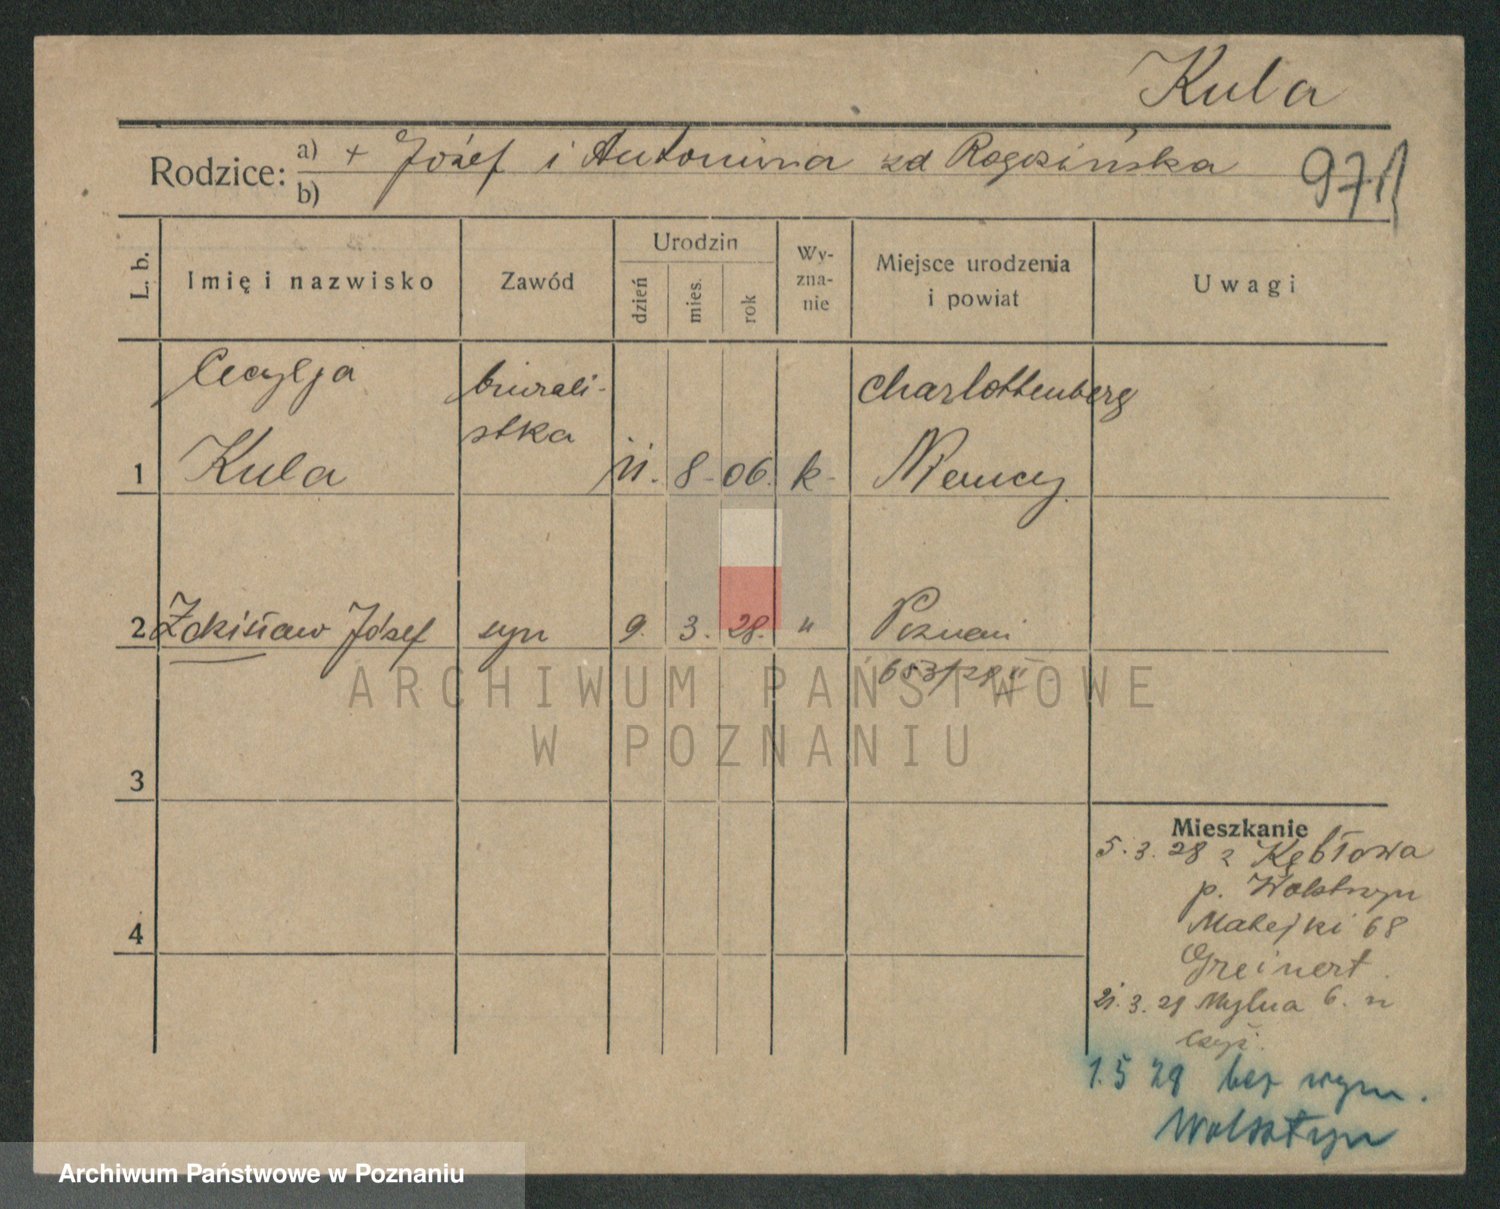 Kula
Rodzice: a) + Józef i Antonina zd Rogozińska
b)
97
L. b. Imię i nazwisko Zawód Urodzin dzień mies. rok Wy-zna-nie Miejsce urodzenia i powiat Uwagi
Cecylja biurali- Charlottenberg
stka
1 Kula 11. 8. 06. k. Niemcy
2 Zdzisław Józef syn 9. 3. 28. " Poznań
653/28 II
ARCHIWUM PAŃSTWOWE
W POZNANIU
3
Mieszkanie
5.3.28 z Kębłowa
p. Wolsztyn
4
Matejki 68
Greinert.
21.3.28 Mylna 6.
1.5 29 bez wym.
Wolsztyn
Archiwum Państwowe w Poznaniu